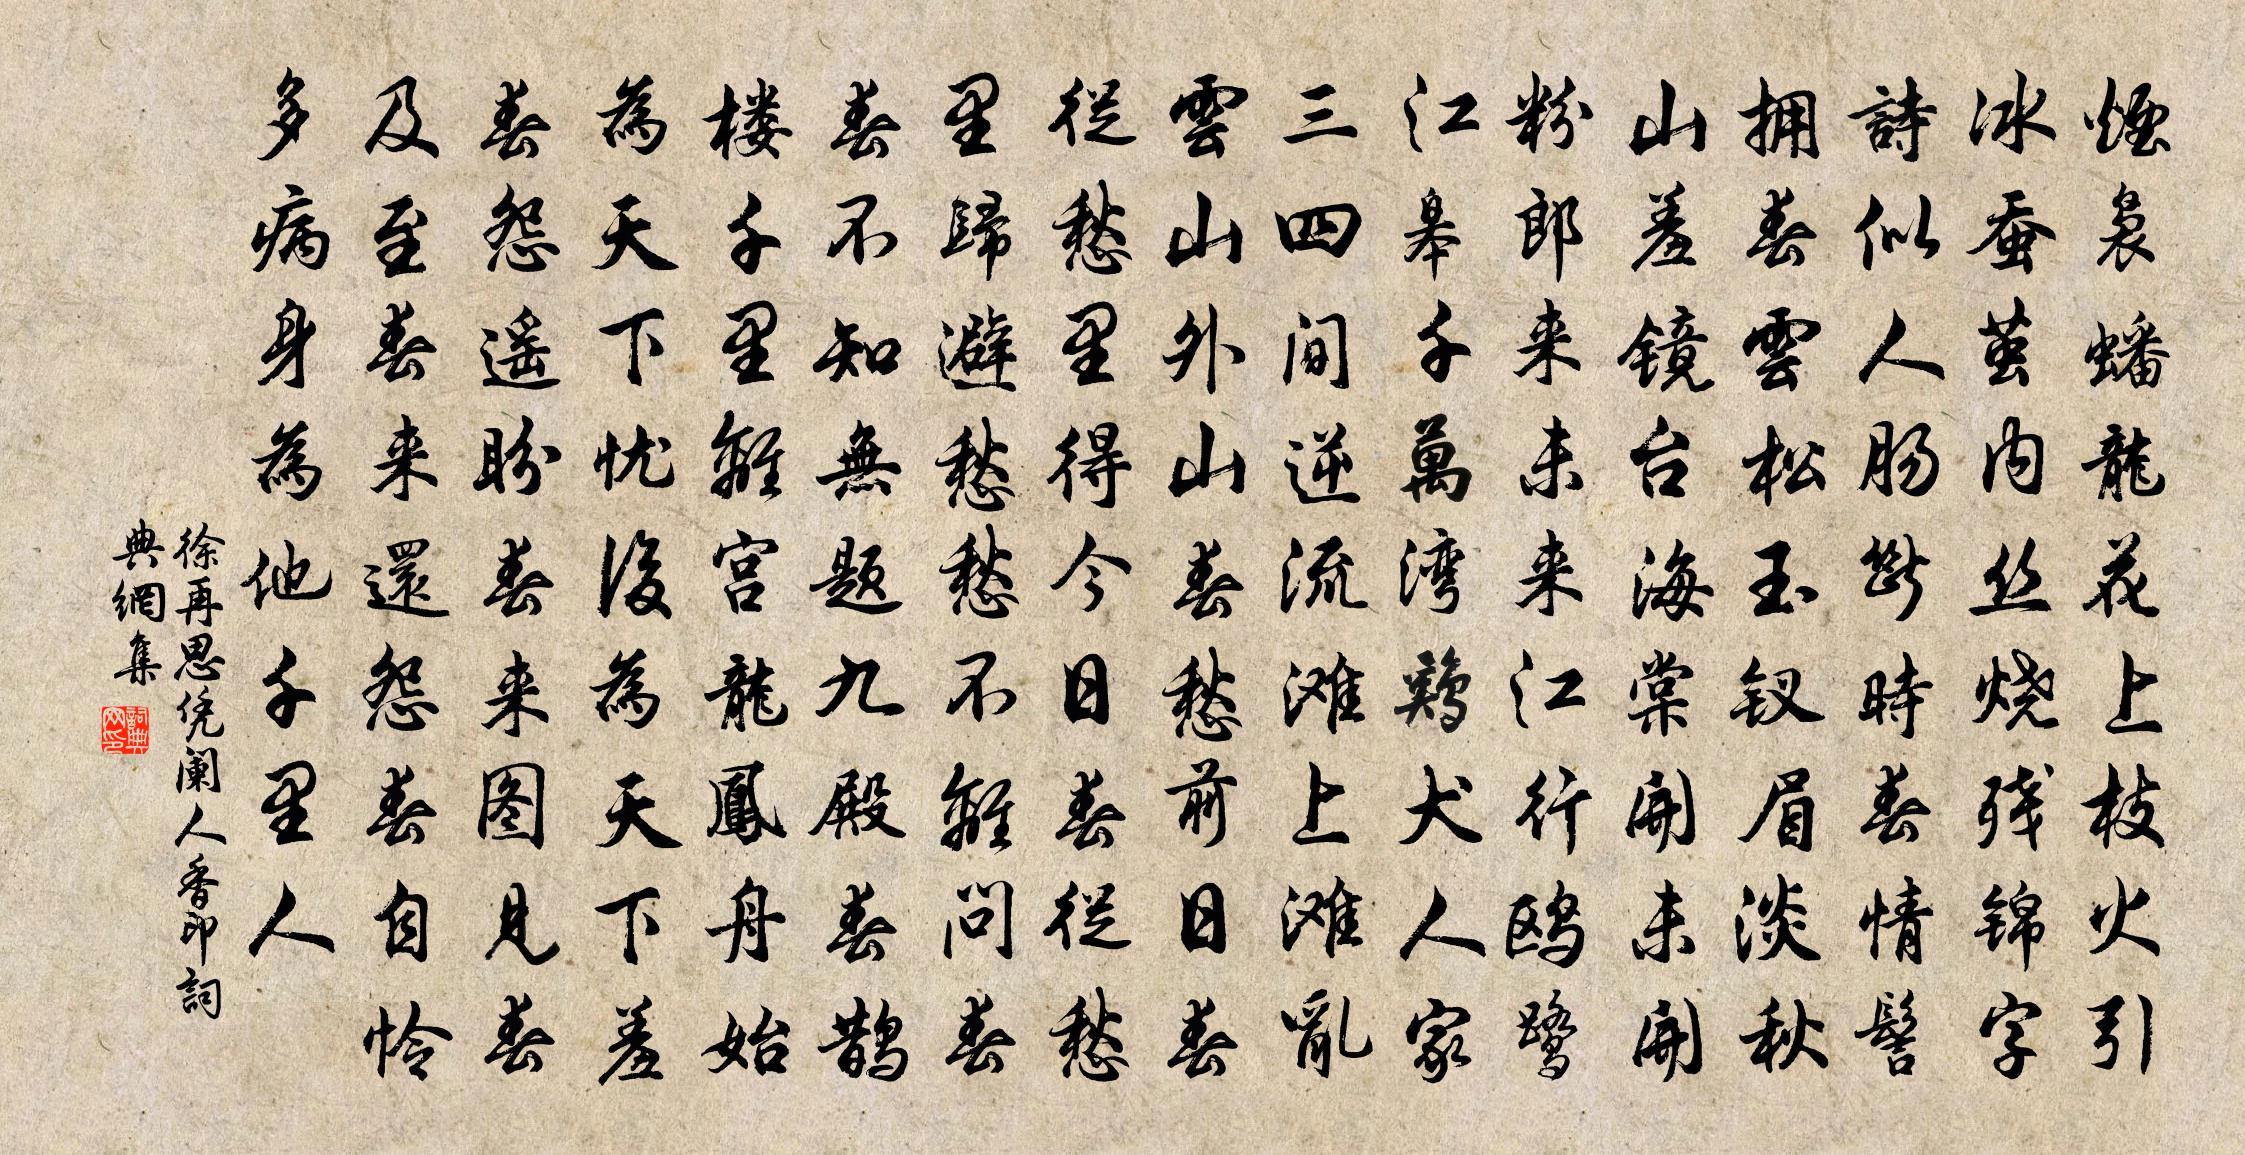 煙裊蟠龍花上枝火引
冰蚕茧内丝烧残锦字
詩似人肠断時春情髻
拥春雲松玉钗眉淡秋
山羞镜台海棠開未開
粉郎来未来江行鸥鹭
江皋千萬湾鷄犬人家
三四间逆流滩上滩亂
雲山外山春愁前日春
従愁里得今日春従愁
里歸避愁愁不離问春
春不知無题九殿春鹊
楼千里離宫龍鳳舟始
為天下忧後為天下羞
春怨遥盼春来图見春
及至春来還怨春自怜
多病身為他千里人
徐再思凭阑人香印詞
典網集
詞典网印